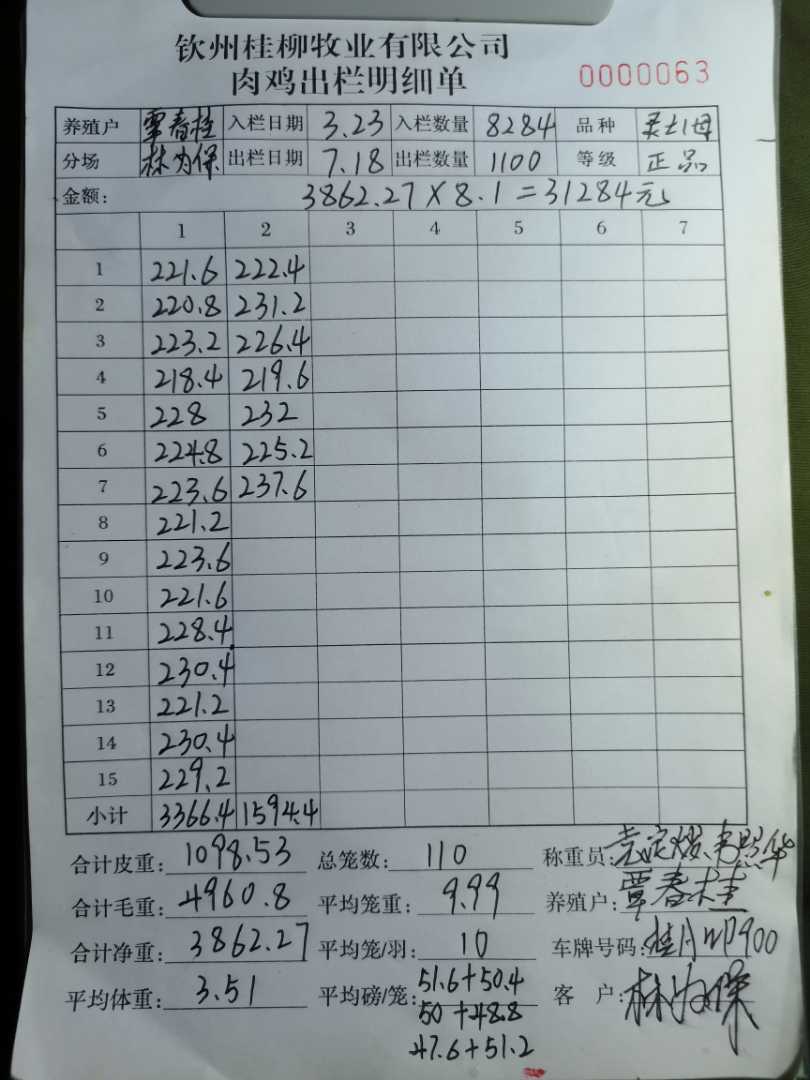 钦州桂柳牧业有限公司
肉鸡出栏明细单 0000063
养殖户 覃春桂 入栏日期 3.23 入栏数量 8284 品种 灵土1母
分场 林为保 出栏日期 7.18 出栏数量 1100 等级 正品
金额: 3862.27×8.1=31284元
1 2 3 4 5 6 7
1 221.6 222.4
2 220.8 231.2
3 223.2 226.4
4 218.4 219.6
5 228 232
6 224.8 225.2
7 223.6 237.6
8 221.2
9 223.6
10 221.6
11 228.4
12 230.4
13 221.2
14 230.4
15 229.2
小计 3366.4 1594.4
合计皮重: 1098.53 总笼数: 110 称重员:
合计毛重: 4960.8 平均笼重: 9.99 养殖户: 覃春桂
合计净重: 3862.27 平均笼/羽: 10 车牌号码: 900
平均体重: 3.51 平均磅/笼: 51.6+50.4 客户: 林为保
50+48.8
47.6+51.2